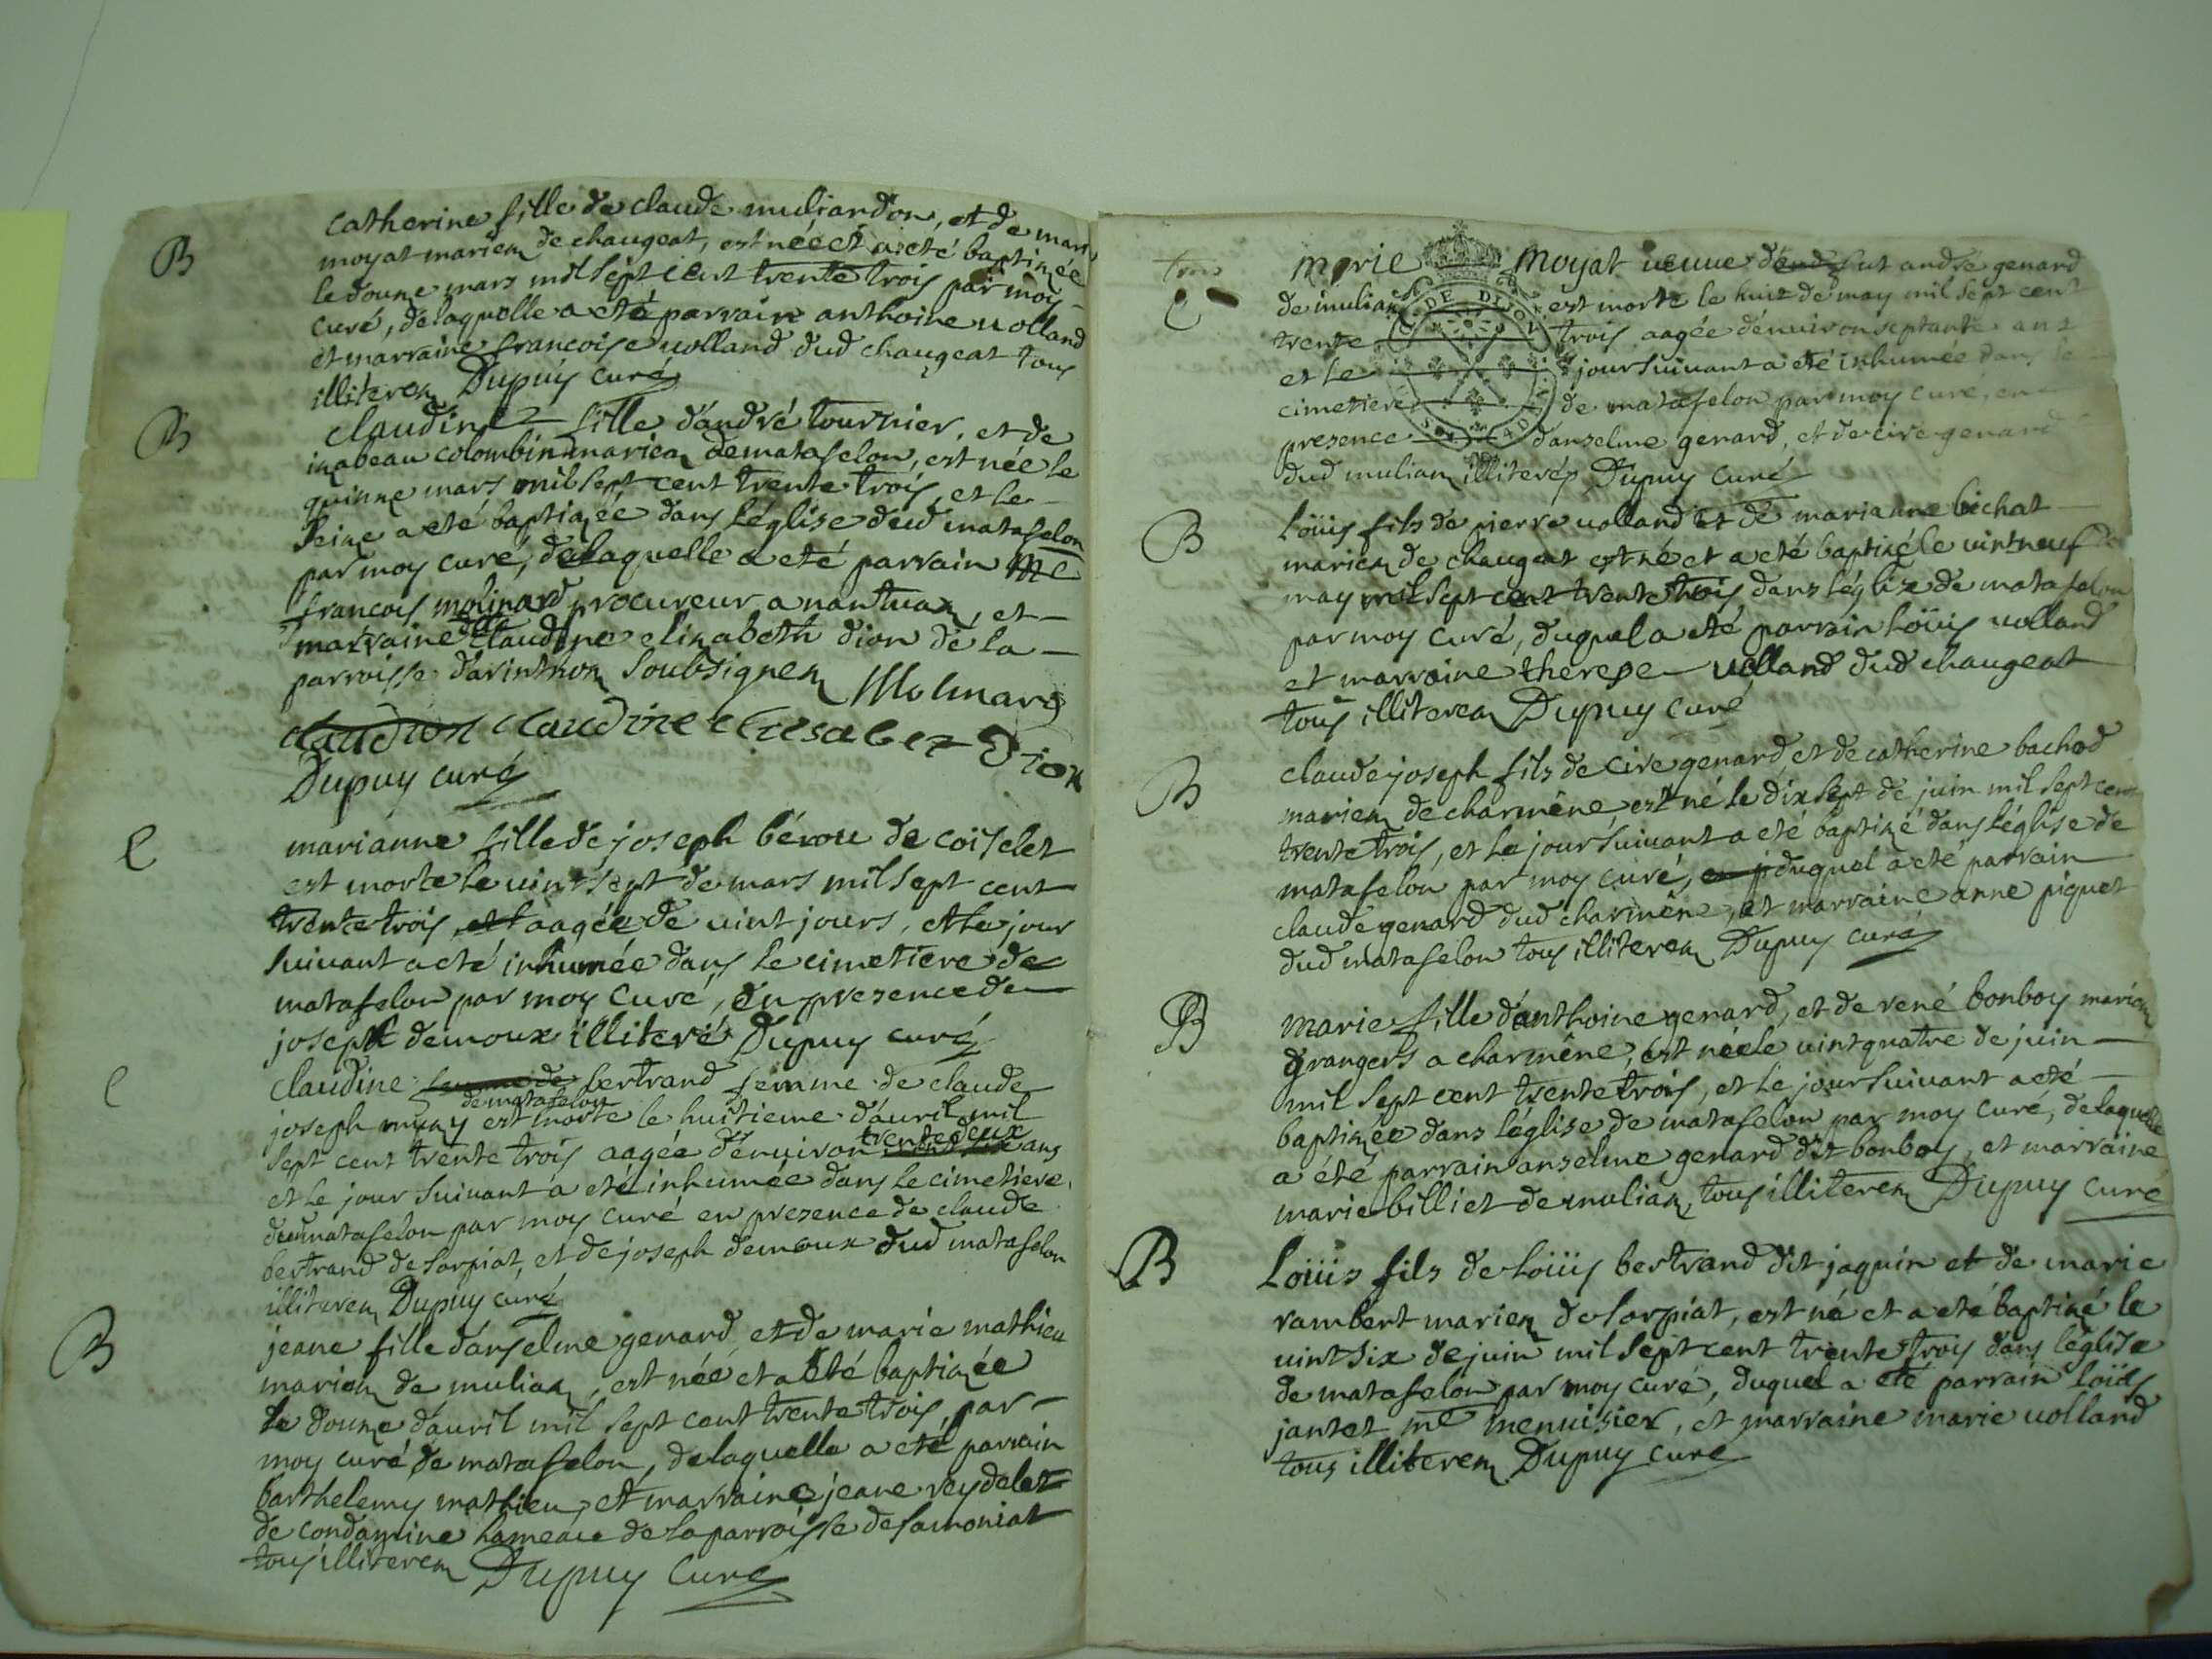 B
catherine fille de claude muliardon, et de marie
moyat mariez de chaugeat, est née et a eté baptizée
le douze mars mil sept cent trente trois par moy
curé, de laquelle a eté parrain anthoine uolland
et marraine francoise uolland dud chaugeat tous
illiterez Dupuy curé
B
claudine fille d'andré tournier, et de
izabeau colombin mariez de matafelon, est née le
quinze mars mil sept cent trente trois, et le
seize a eté baptizée dans l'église dud matafelon
par moy curé, de laquelle a eté parrain me
francois molinard procureur a nantuaz, et
marraine dlle claudine elizabeth dion de la
parroisse d'arinthoz soubsignez Molinard
claudion claudine elisabez Dion
Dupuy curé
C
marianne fille de joseph bérou de coiselet
est morte le uint sept de mars mil sept cent
trente trois, et aagée de uint jours, et le jour
suiuant a eté inhumée dans le cimetiere de
matafelon par moy curé, en presence de
joseph demoux illiteré Dupuy curé
C
claudine femme de bertrand femme de claude
de matafelon
joseph muzy est morte le huitieme d'auril mil
trente deux
sept cent trente trois aagée d'enuiron ans
et le jour suiuant a eté inhumée dans le cimetiere
dud matafelon par moy curé en presence de claude
bertrand de sorpiat, et de joseph demoux dud matafelon
illiterez Dupuy curé
B
jeane fille d'anselme genard, et de marie mathieu
mariez de muliaz, est née et a eté baptizée
le douze d'auril mil sept cent trente trois, par
moy curé de matafelon, de laquelle a eté parrain
barthelemy mathieu, et marraine jeane reydelet
de condamine hameau de la parroisse de samoniat
tous illiterez Dupuy Curé
C
marie moyat ueuue d'and fut andre genard
de muliaz est morte le huit de may mil sept cent
trente trois aagée d'enuiron septante ans
et le jour suiuant a eté inhumée dans le
cimetiere de matafelon par moy curé, en
presence d'anselme genard, et de cire genard
dud muliaz illiterés Dupuy curé
DE DIJON
B
Loüis fils de pierre uolland et de marianne bichat
mariez de chaugeat est né et a eté baptizé le uint neuf de
may mil sept cent trente trois dans léglize de matafelon
par moy curé, duquel a eté parrain Loüis uolland
et marraine therese uolland dud chaugeat
tous illiterez Dupuy curé
B
claude joseph fils de cire genard et de catherine bachod
mariez de charmêne, est né le dix sept de juin mil sept cent
trente trois, et le jour suiuant a eté baptizé dans l'église de
matafelon par moy curé, en p duquel a eté parrain
claude genard dud charmêne, et marraine anne piquet
dud matafelon tous illiterez Dupuy curé
B
marie fille d'anthoine genard, et de rené bonboy mariez
grangers a charmêne, est née le uint quatre de juin
mil sept cent trente trois, et le jour suiuant a eté
baptizée dans l'église de matafelon par moy curé, de laquelle
a été parrain anselme genard dit bonboy, et marraine
marie billiet de muliaz, tous illiterez Dupuy curé
B
Loüis fils de Loüis bertrand dit jaquin et de marie
rambert mariez de sorpiat, est né et a eté baptizé le
uint six de juin mil sept cent trente trois dans l'église
de matafelon par moy curé, duquel a eté parrain Loüis
jantet me menuisier, et marraine marie uolland
tous illiterez Dupuy curé